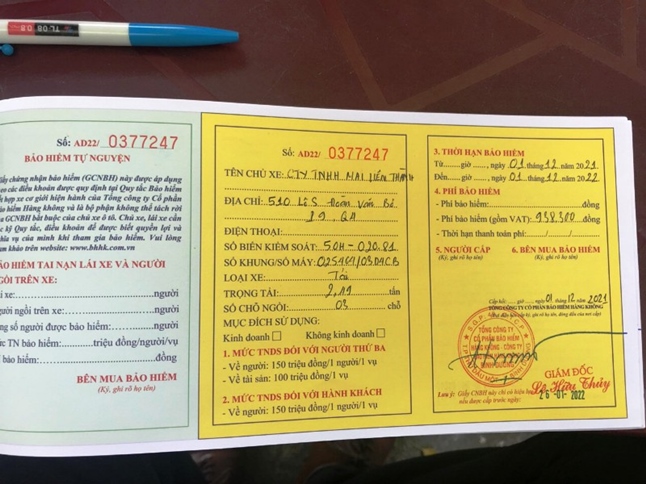 TL-08 0.8
Số: AD22/ 0377247
BẢO HIỂM TỰ NGUYỆN
Giấy chứng nhận bảo hiểm (GCNBH) này được áp dụng
các điều khoản được quy định tại Quy tắc Bảo hiểm
hợp xe cơ giới hiện hành của Tổng công ty Cổ phần
Bảo hiểm Hàng không và là bộ phận không thể tách rời
GCNBH bắt buộc của chủ xe ô tô. Chủ xe, lái xe cần
kỹ Quy tắc, điều khoản để được biết quyền lợi và
nghĩa vụ của mình khi tham gia bảo hiểm. Vui lòng
tham khảo trên website: www.bhhk.com.vn
BẢO HIỂM TAI NẠN LÁI XE VÀ NGƯỜI
NGỒI TRÊN XE:
lái xe:........người
người ngồi trên xe:........người
số người được bảo hiểm:........người
TN bảo hiểm:........triệu đồng/người/vụ
bảo hiểm:........đồng
BÊN MUA BẢO HIỂM
(Ký, ghi rõ họ tên)
Số: AD22/ 0377247
TÊN CHỦ XE: CTY TNHH MAI LIÊN THÀNH
ĐỊA CHỈ: 510 Văn Bé.
ĐIỆN THOẠI:
SỐ BIỂN KIỂM SOÁT: 50H-020.81
SỐ KHUNG/SỐ MÁY: 025401/03D4CB
LOẠI XE: Tải
TRỌNG TẢI: 2,19 tấn
SỐ CHỖ NGỒI: 03 chỗ
MỤC ĐÍCH SỬ DỤNG:
Kinh doanh Không kinh doanh
1. MỨC TNDS ĐỐI VỚI NGƯỜI THỨ BA
- Về người: 150 triệu đồng/1 người/1 vụ
- Về tài sản: 100 triệu đồng/1 vụ
2. MỨC TNDS ĐỐI VỚI HÀNH KHÁCH
- Về người: 150 triệu đồng/1 người/1 vụ
3. THỜI HẠN BẢO HIỂM
Từ......giờ......, ngày 01 tháng 12 năm 2021
Đến......giờ......, ngày 01 tháng 12 năm 2022
4. PHÍ BẢO HIỂM
- Phí bảo hiểm:........đồng
- Phí bảo hiểm (gồm VAT): 938,300 đồng
- Thời hạn thanh toán phí:....../....../......
5. NGƯỜI CẤP 6. BÊN MUA BẢO HIỂM
(Ký, ghi rõ họ tên) (Ký, ghi rõ họ tên)
Cấp hồi:......giờ......, ngày 01/12 năm 2021
TỔNG CÔNG TY CỔ PHẦN BẢO HIỂM HÀNG KHÔNG
TỔNG CÔNG TY
CỔ PHẦN BẢO HIỂM
HÀNG KHÔNG - CÔNG TY
BÌNH DƯƠNG
GIÁM ĐỐC
Lê Hữu Thủy
26 -01- 2022
Lưu ý: Giấy CNBH này chỉ có hiệu lực
nếu được cấp trước ngày: